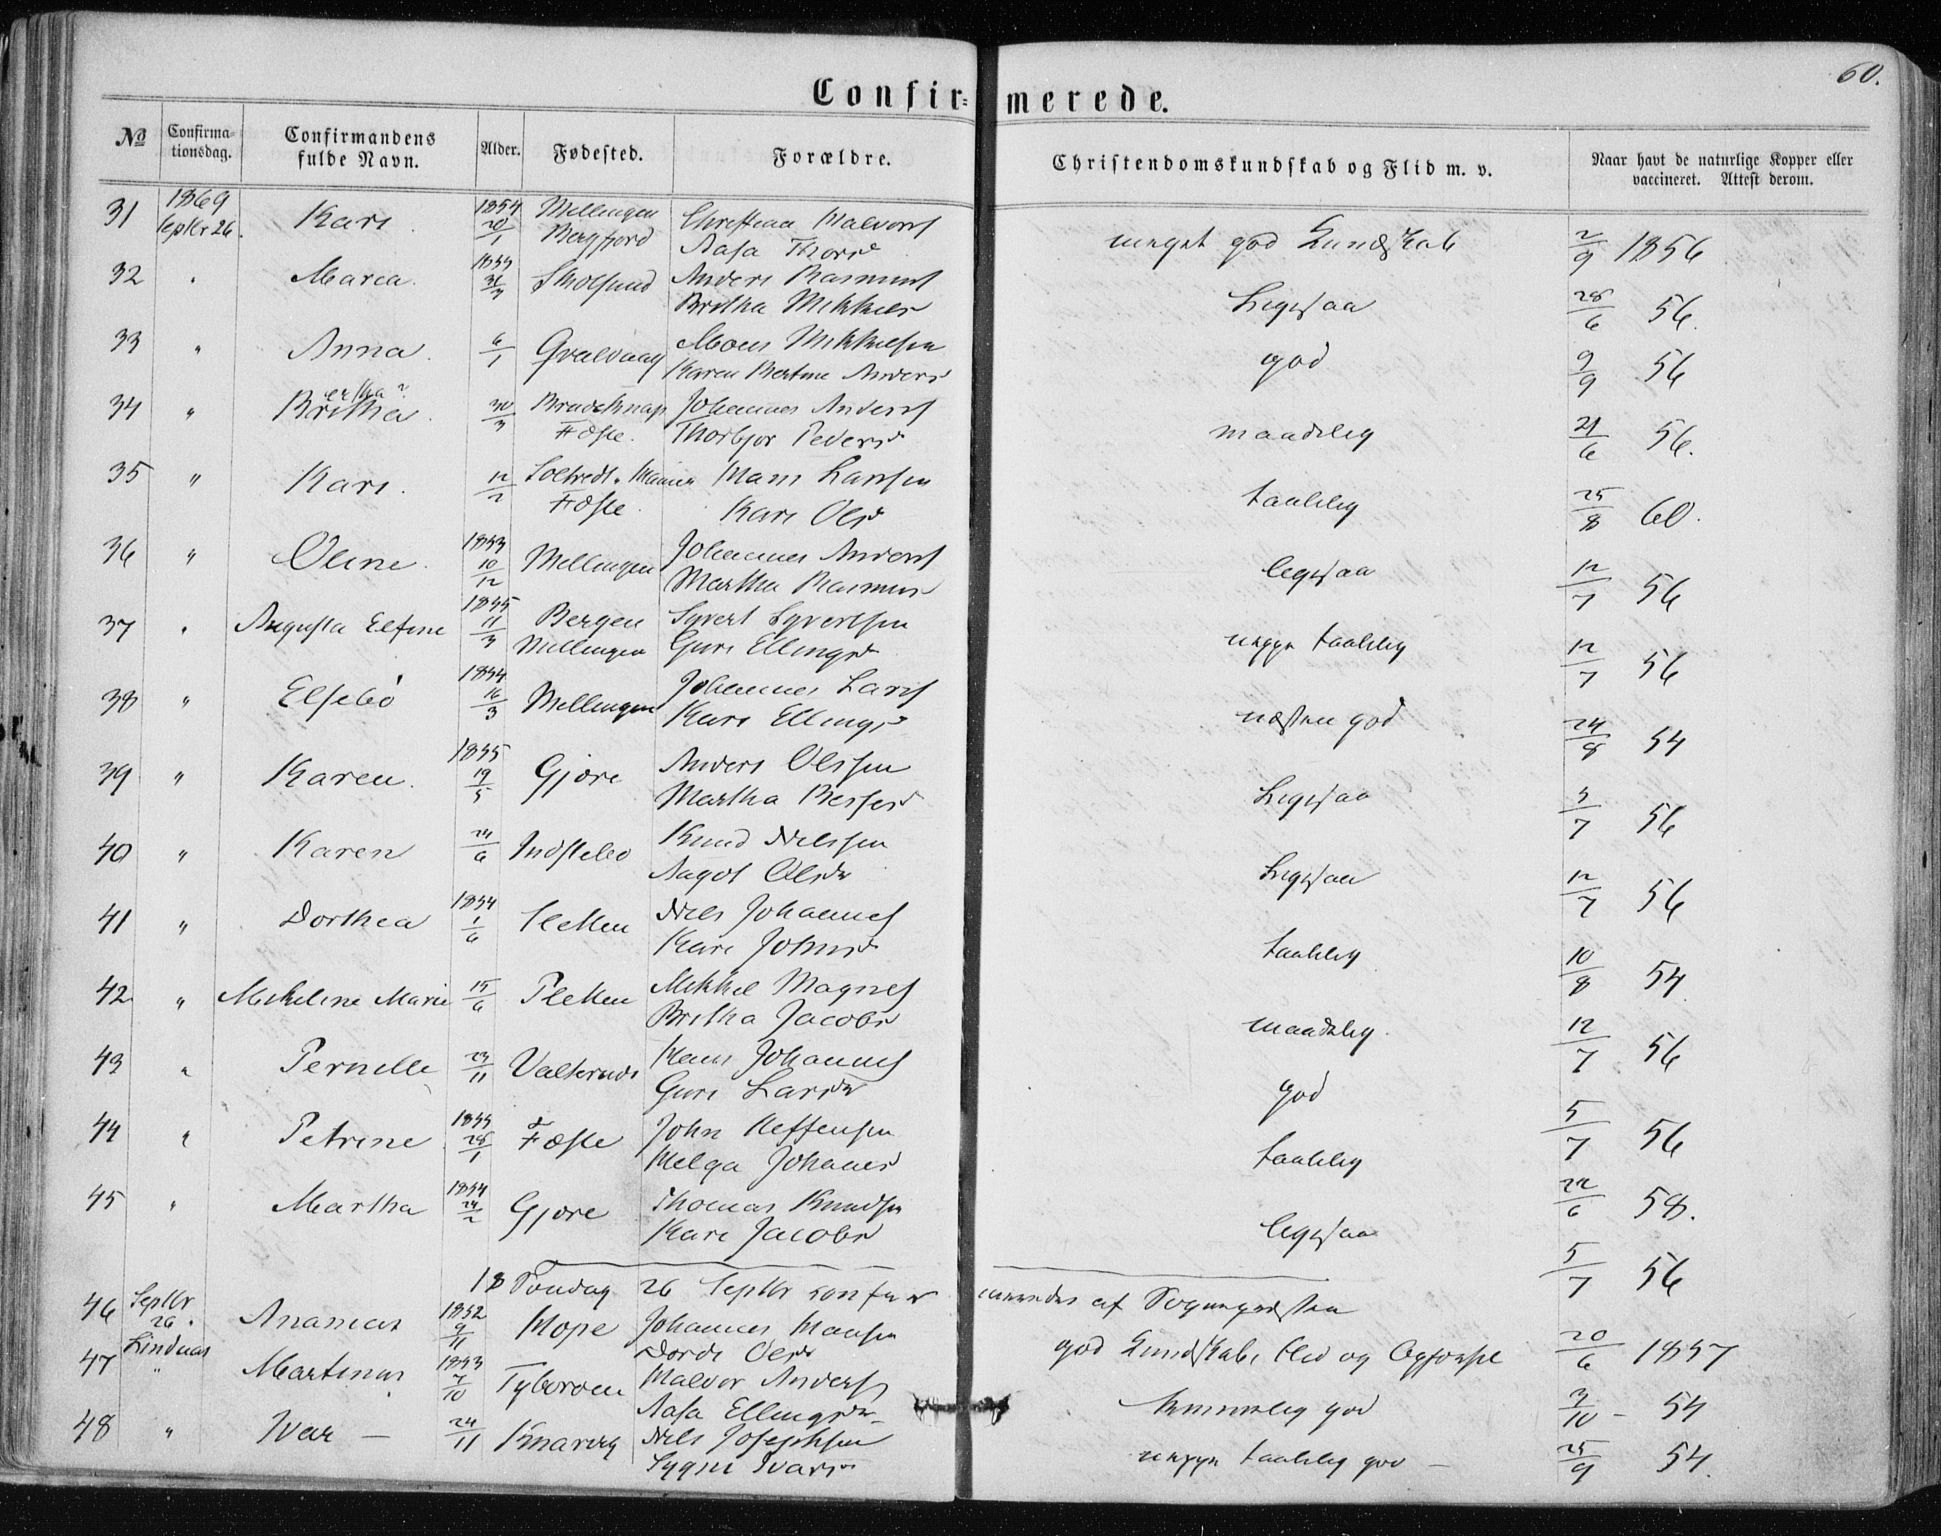 60.
Confir- merede.
№ Confirma- tionsdag. Confirmandens fulde Navn. Alder. Fødested. Forældre. Christendomskundskab og Flid m. v. Naar havt de naturlige Kopper eller vaccineret. Attest derom.
31 1869 Septbr 26. Kari 1854 20/1 Mellingen Christian Halvors
Aasa Thors meget god Kundskab 2/9 1856
32 " Maria. 31/3 Anders Rasmus
Britha Mikkels Ligesaa 28/6 56.
33 " Anna. 6/1 Mons Mikkelsen
Karen Bertine Anders god 9/9 56
34 " Britha ertha? 30/3 Johannes Anders
Fæste. Thorbjør Peders maadelig 21/6 56.
35 " Kari. 12/2 Hans Larsen
Fæste. Kari Ols taalelig 25/8 60.
36 " Oline. 1853 10/12 Mellingen Johannes Anders
Martha Rasmus ligesaa 12/7 56
37 " Augusta Elfine 1855 11/3 Bergen Syvert Syvertsen
Mellingen Guri Ellings taalelig 12/7 56
38 " Elsebø 1854 16/3 Mellingen Johannes Lars
Kari Ellings næsten god 24/8 54
39 " Karen. 1855 19/5 Gjøre Anders Olssen
Martha Ligesaa 3/7 56
40 " Karen 24/6 Indstebø Knud Nilssen
Aagot Ols Ligesaa 12/7 56
41 " Dorthea 1854 1/6 Sletten Nils Johannes
Kari Johns taalelig 10/8 54
42 " Mikeline Marie 15/6 Sletten Mikkel Magnes
Britha Jacobs maadelig. 12/7 56
43 " Pernille 23/11 Hans Johannes
Guri Lars god 5/7 56
44 " Petrine 1855 28/1 Fæste John Steffensen
Helga Johanes taalelig 22/6 58.
45 " Martha 1854 24/2 Gjøre Thomas Knudsen
Kari Jacobs ligesaa 5/7 56
18 Søndag 26 Septbr confir meredes af Sognepresten
46 Septbr 26. Ananias 1852 9/11 Hope Johannes Hansen
Lindaas Dorde Ols god Kundskab, Flid og Opførsel 20/6 1857
47 " Martinus 1853 7/10 Halvor Anders
Aasa Ellings temmelig god 3/10 - 54
48 " Ivar - 24/11 Knarvig Nils Josephsen
Sygni Ivars taalelig god - 25/9 54.